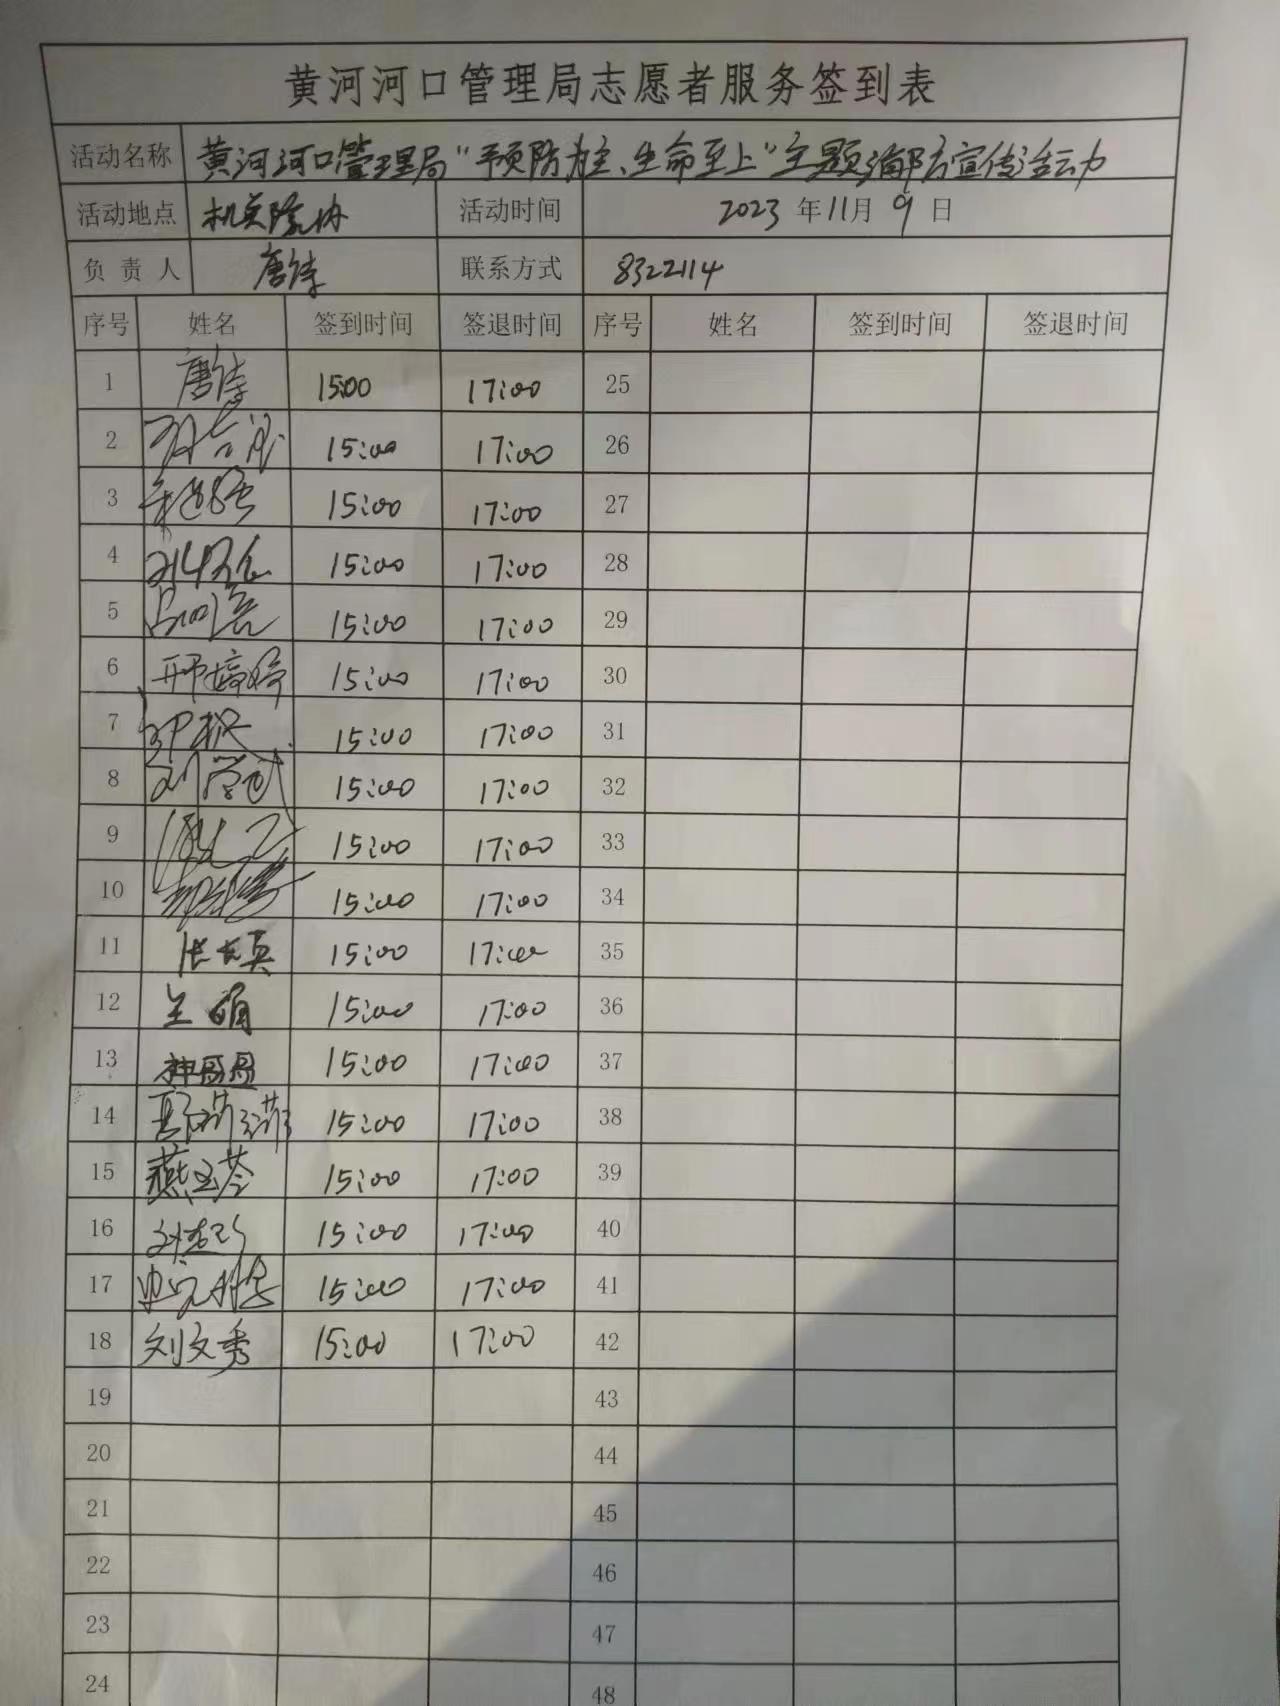 黄河河口管理局志愿者服务签到表
活动名称 黄河河口管理局“预防为主、生命至上”主题消防宣传活动
活动地点 机关院内 活动时间 2023 年 11 月 9 日
负责人 唐诗 联系方式 8322114
序号 姓名 签到时间 签退时间 序号 姓名 签到时间 签退时间
1 唐诗 15:00 17:00 25
2 15:00 17:00 26
3 15:00 17:00 27
4 15:00 17:00 28
5 15:00 17:00 29
6 邢婷婷 15:00 17:00 30
7 15:00 17:00 31
8 刘学武 15:00 17:00 32
9 15:00 17:00 33
10 15:00 17:00 34
11 15:00 17:00 35
12 15:00 17:00 36
13 15:00 17:00 37
14 15:00 17:00 38
15 燕玉苓 15:00 17:00 39
16 15:00 17:00 40
17 15:00 17:00 41
18 刘文秀 15:00 17:00 42
19 43
20 44
21 45
22 46
23 47
24 48